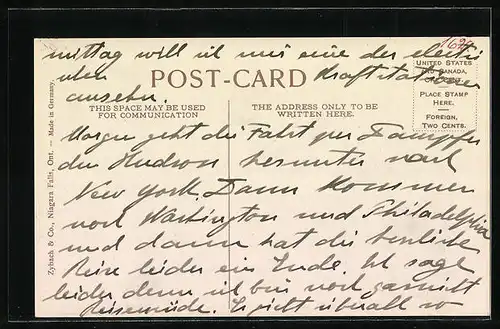 1629
mittag will ich mir eine der electri
schen Kraftstationen
ansehn.
POST-CARD
UNITED STATES
AND CANADA,
PLACE STAMP
HERE.
FOREIGN,
TWO CENTS.
THIS SPACE MAY BE USED
FOR COMMUNICATION
THE ADDRESS ONLY TO BE
WRITTEN HERE.
Zybach & Co., Niagara Falls, Ont. — Made in Germany.
Morgen geht die Fahrt per Dampfer
den Hudson herunter nach
New York. Dann kommen
noch Washington und Philadelphia
und dann hat die herrliche
Reise leider ein Ende. Ich sage
leider denn ich bin noch garnicht
reisemüde. Es sieht überall so